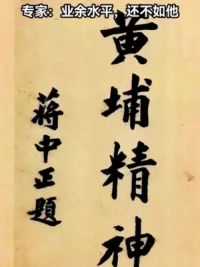 专家：业余水平，还不如他
黄埔精神
蒋中正题